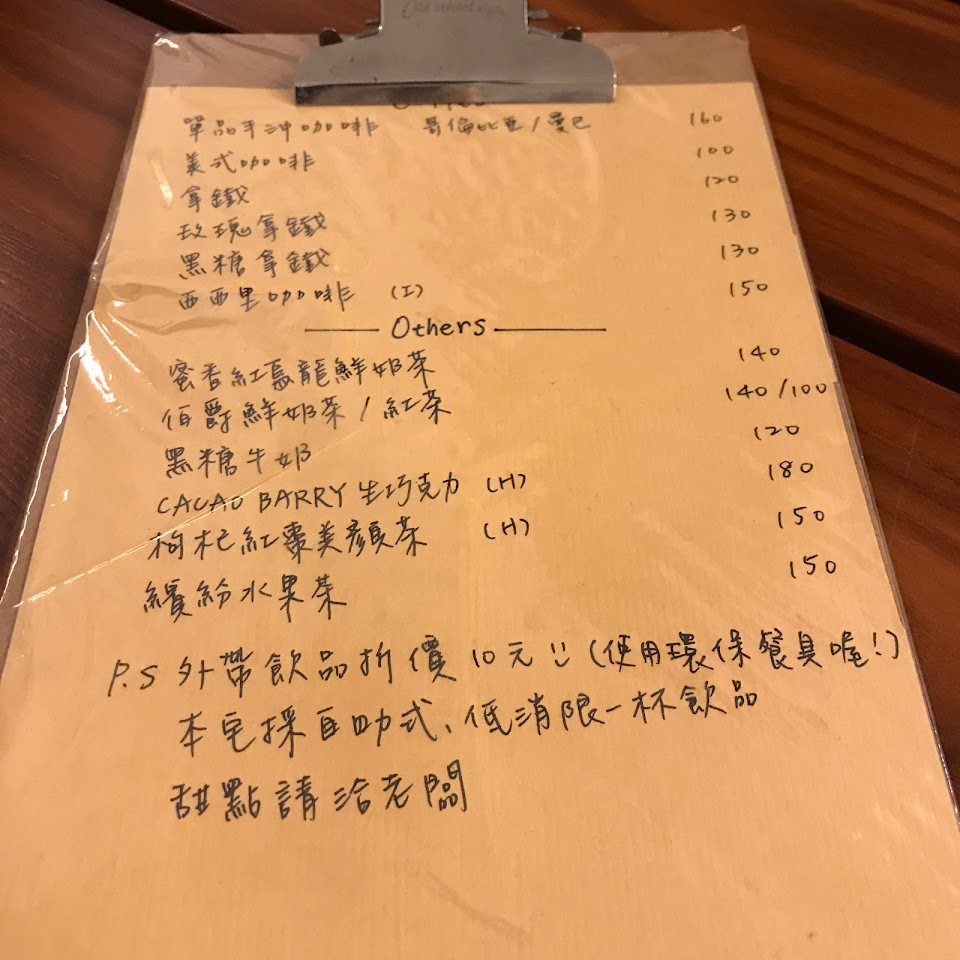 單品手沖咖啡 哥倫比亞/曼巴 160
美式咖啡 100
拿鐵 120
玫瑰拿鐵 130
黑糖拿鐵 130
西西里咖啡 (I) 150
Others
蜜香紅烏龍鮮奶茶 140
伯爵鮮奶茶/紅茶 140/100
黑糖牛奶 120
CACAO BARRY 生巧克力 (H) 180
枸杞紅棗美顏茶 (H) 150
繽紛水果茶 150
P.S 外帶飲品折價10元!! (使用環保餐具喔!)
本宅採自助式、低消限一杯飲品
甜點請洽老闆